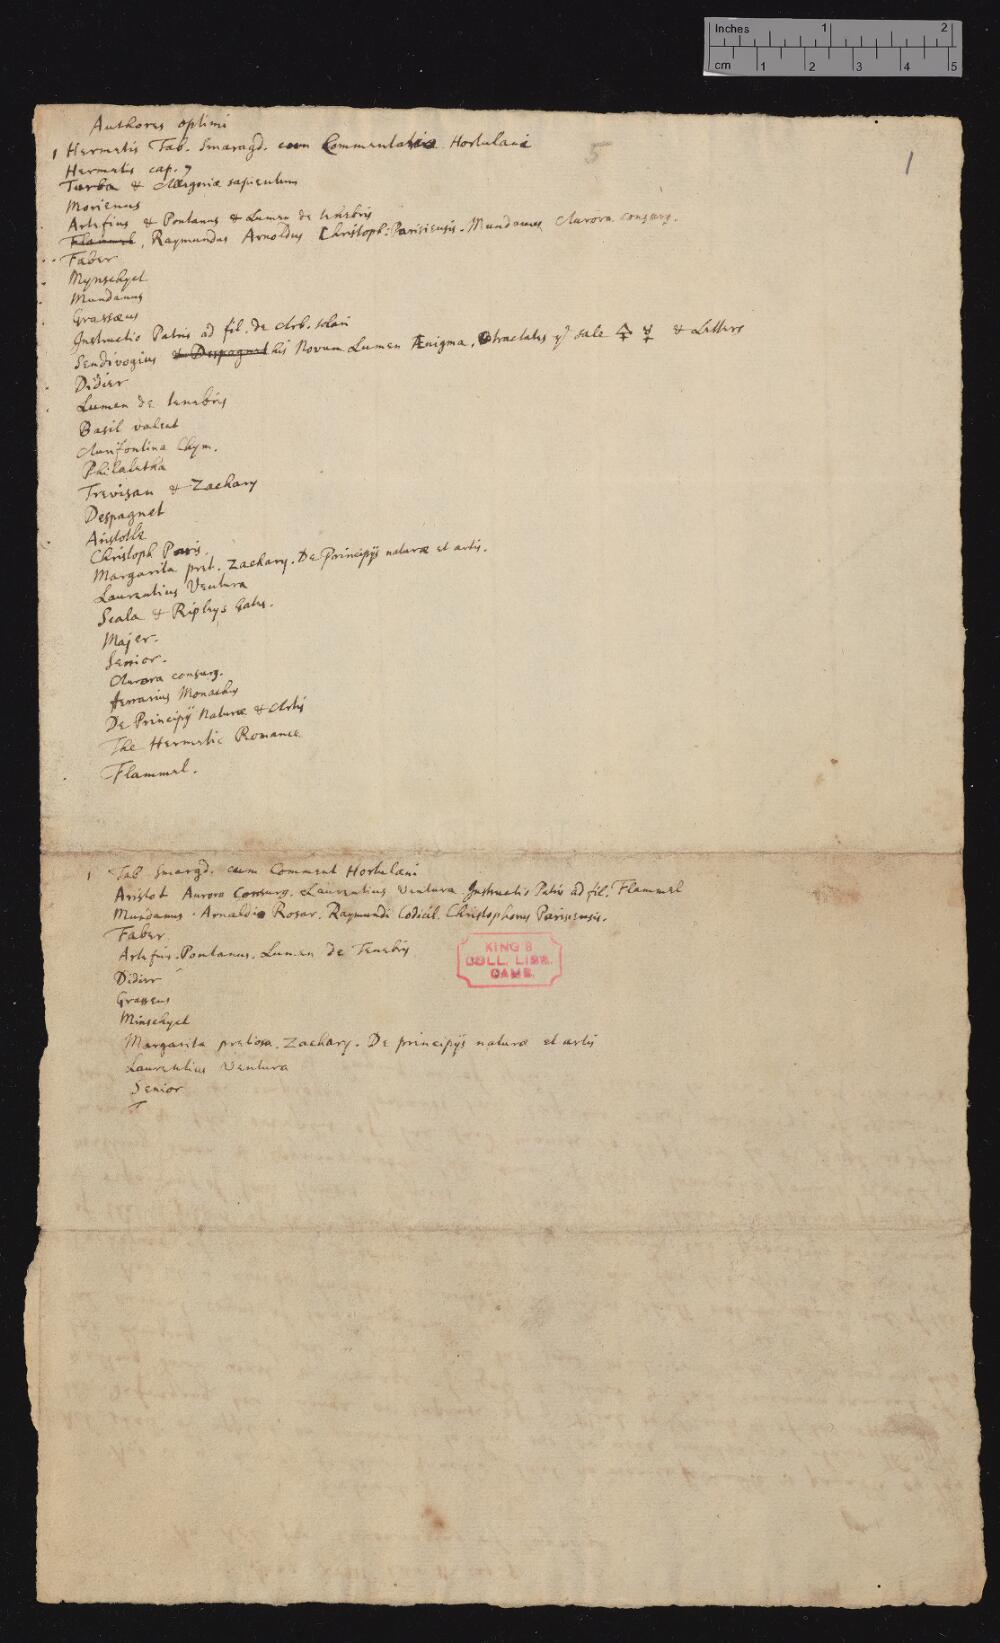 Inches 1 2
cm 1 2 3 4 5
Authores optimi
5 1
1 Hermetis Tab. Smaragd. cum Commentatio Hortulani
Hermetis cap. 7
Turba & Allegoriæ sapientum
Morienus
Artefius & Pontanus & Lumen de tenebris
Flammel, Raymundus Arnoldus Christoph: Parisiensis. Mundanus Aurora consurg.
Faber
Mynschyet
Mundanus
Grassæus
Instructio Patris ad fil. de Arb. solari
Sendivogius & Despagnet his Novum Lumen Ænigma, tractates yͤ sale 🜍 ☿ & Letters
Didier
Lumen de tenebris
Basil valent
Aurifontina Chym.
Philaletha
Trevisan & Zachary
Despagnet
Aristotle
Christoph Paris.
Margarita pret. Zachary. De Principijs naturæ et artis.
Laurentius Ventura
Scala & Ripleys Gates.
Majer.
Senior.
Aurora consurg.
ferrarius Monachus
De Principij Naturæ & Artis
The Hermetic Romance
Flammel.
1 Tab Smargd. cum Comment Hortulani
Aristot Aurora Consurg. Laurentius Ventura Instructio Patris ad fil. Flammel
Mundanus. Arnaldi Rosar. Raymundi Codicil. Christophorus Parisiensis.
Faber
Artefius. Pontanus. Lumen de Tenebris
Didier
Grasseus
Minschyet
Margarita pretiosa. Zachary. De principijs naturæ et artis
Laurentius Ventura
Senior
T
KING'S
COLL. LIBR.
CAMB.